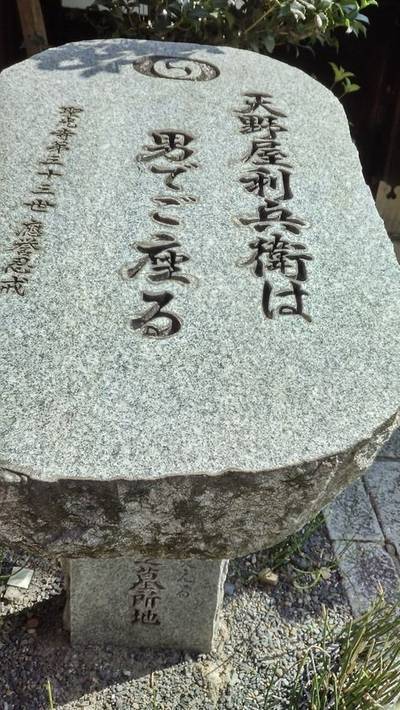 天野屋利兵衛は
男でござる
聖光寺第三十三世
墓所地